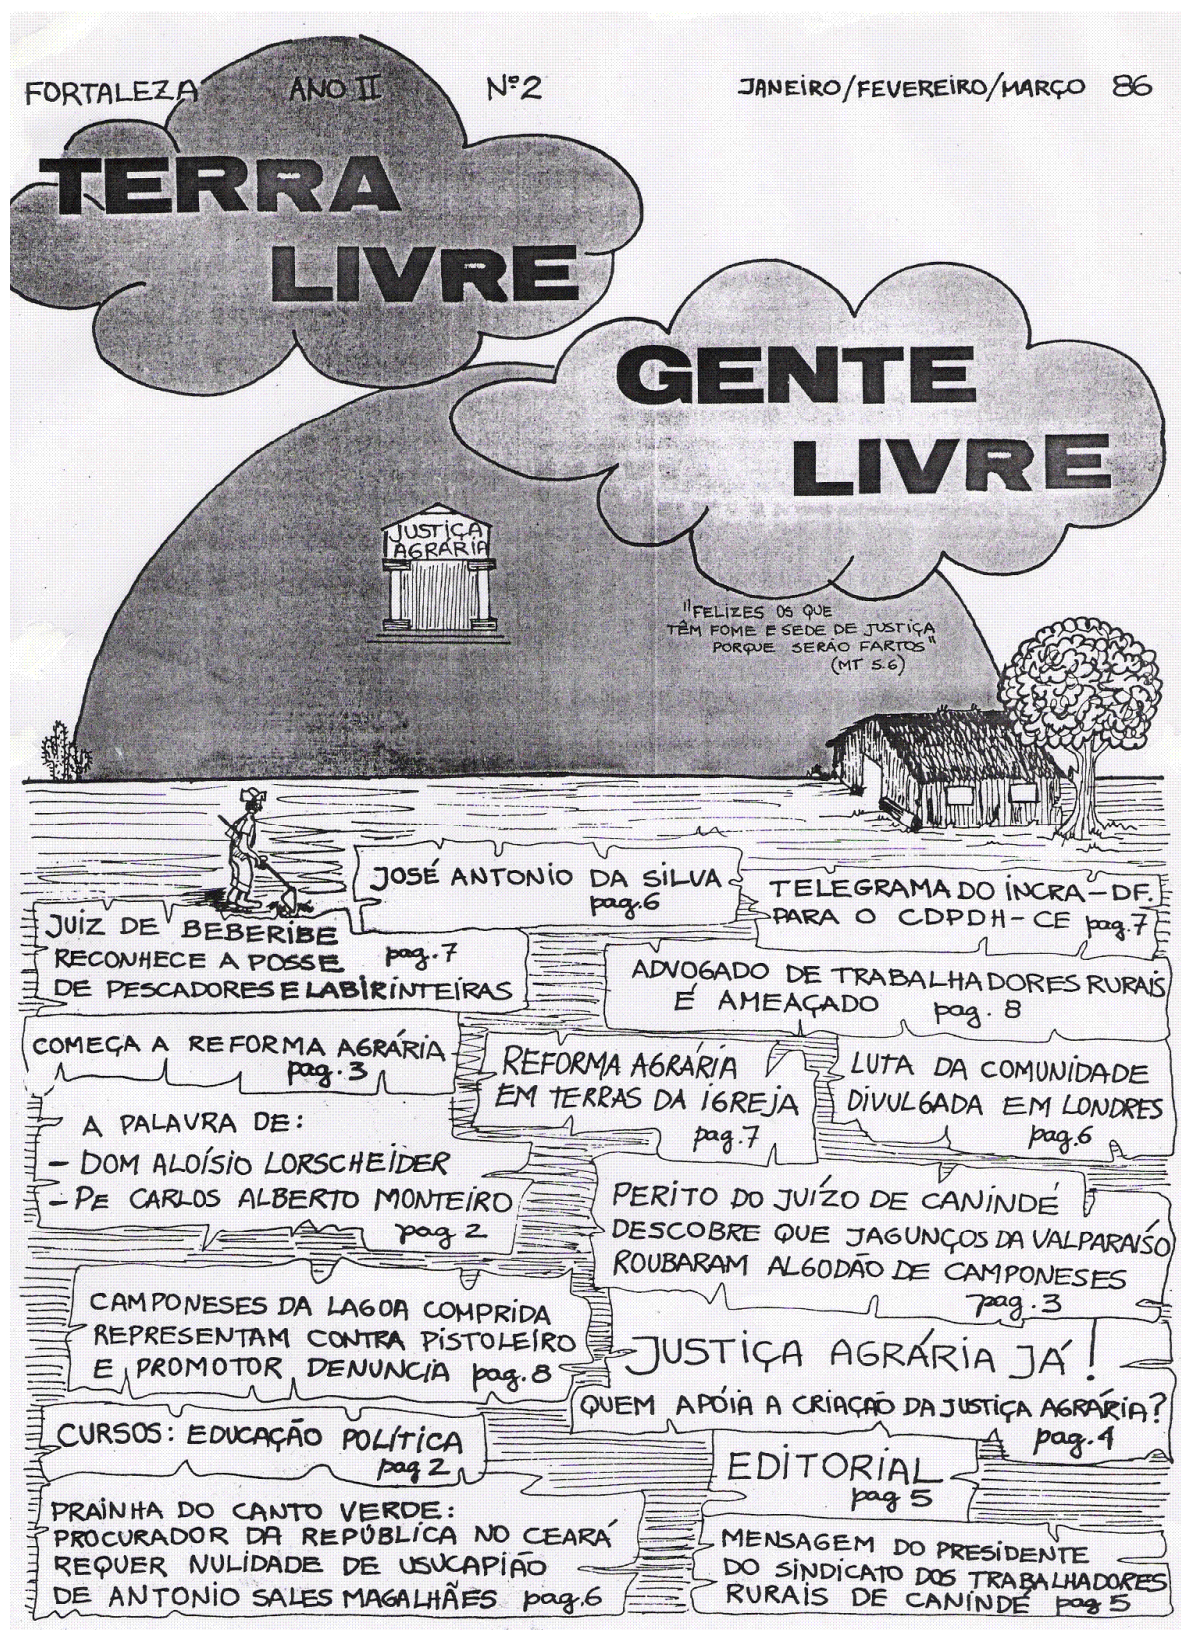 FORTALEZA ANO II Nº2 JANEIRO/FEVEREIRO/MARÇO 86
TERRA
LIVRE
GENTE
LIVRE
JUSTIÇA
AGRÁRIA
"FELIZES OS QUE
TÊM FOME E SEDE DE JUSTIÇA
PORQUE SERÃO FARTOS"
(MT 5.6)
JOSÉ ANTONIO DA SILVA
pag.6
TELEGRAMA DO INCRA-DF.
PARA O CDPDH-CE pag.7
JUIZ DE BEBERIBE
RECONHECE A POSSE pag.7
DE PESCADORES E LABIRINTEIRAS
ADVOGADO DE TRABALHADORES RURAIS
É AMEAÇADO pag. 8
COMEÇA A REFORMA AGRÁRIA
pag.3
REFORMA AGRÁRIA
EM TERRAS DA IGREJA
pag.7
LUTA DA COMUNIDADE
DIVULGADA EM LONDRES
pag.6
A PALAVRA DE:
- DOM ALOÍSIO LORSCHEIDER
- PE CARLOS ALBERTO MONTEIRO
pag 2
PERITO DO JUÍZO DE CANINDÉ
DESCOBRE QUE JAGUNÇOS DA VALPARAÍSO
ROUBARAM ALGODÃO DE CAMPONESES
pag.3
CAMPONESES DA LAGOA COMPRIDA
REPRESENTAM CONTRA PISTOLEIRO
E PROMOTOR DENUNCIA pag.8
JUSTIÇA AGRÁRIA JÁ!
QUEM APÓIA A CRIAÇÃO DA JUSTIÇA AGRÁRIA?
pag.4
CURSOS: EDUCAÇÃO POLÍTICA
pag 2
EDITORIAL
pag 5
PRAINHA DO CANTO VERDE:
PROCURADOR DA REPÚBLICA NO CEARÁ
REQUER NULIDADE DE USUCAPIÃO
DE ANTONIO SALES MAGALHÃES pag.6
MENSAGEM DO PRESIDENTE
DO SINDICATO DOS TRABALHADORES
RURAIS DE CANINDÉ pag 5